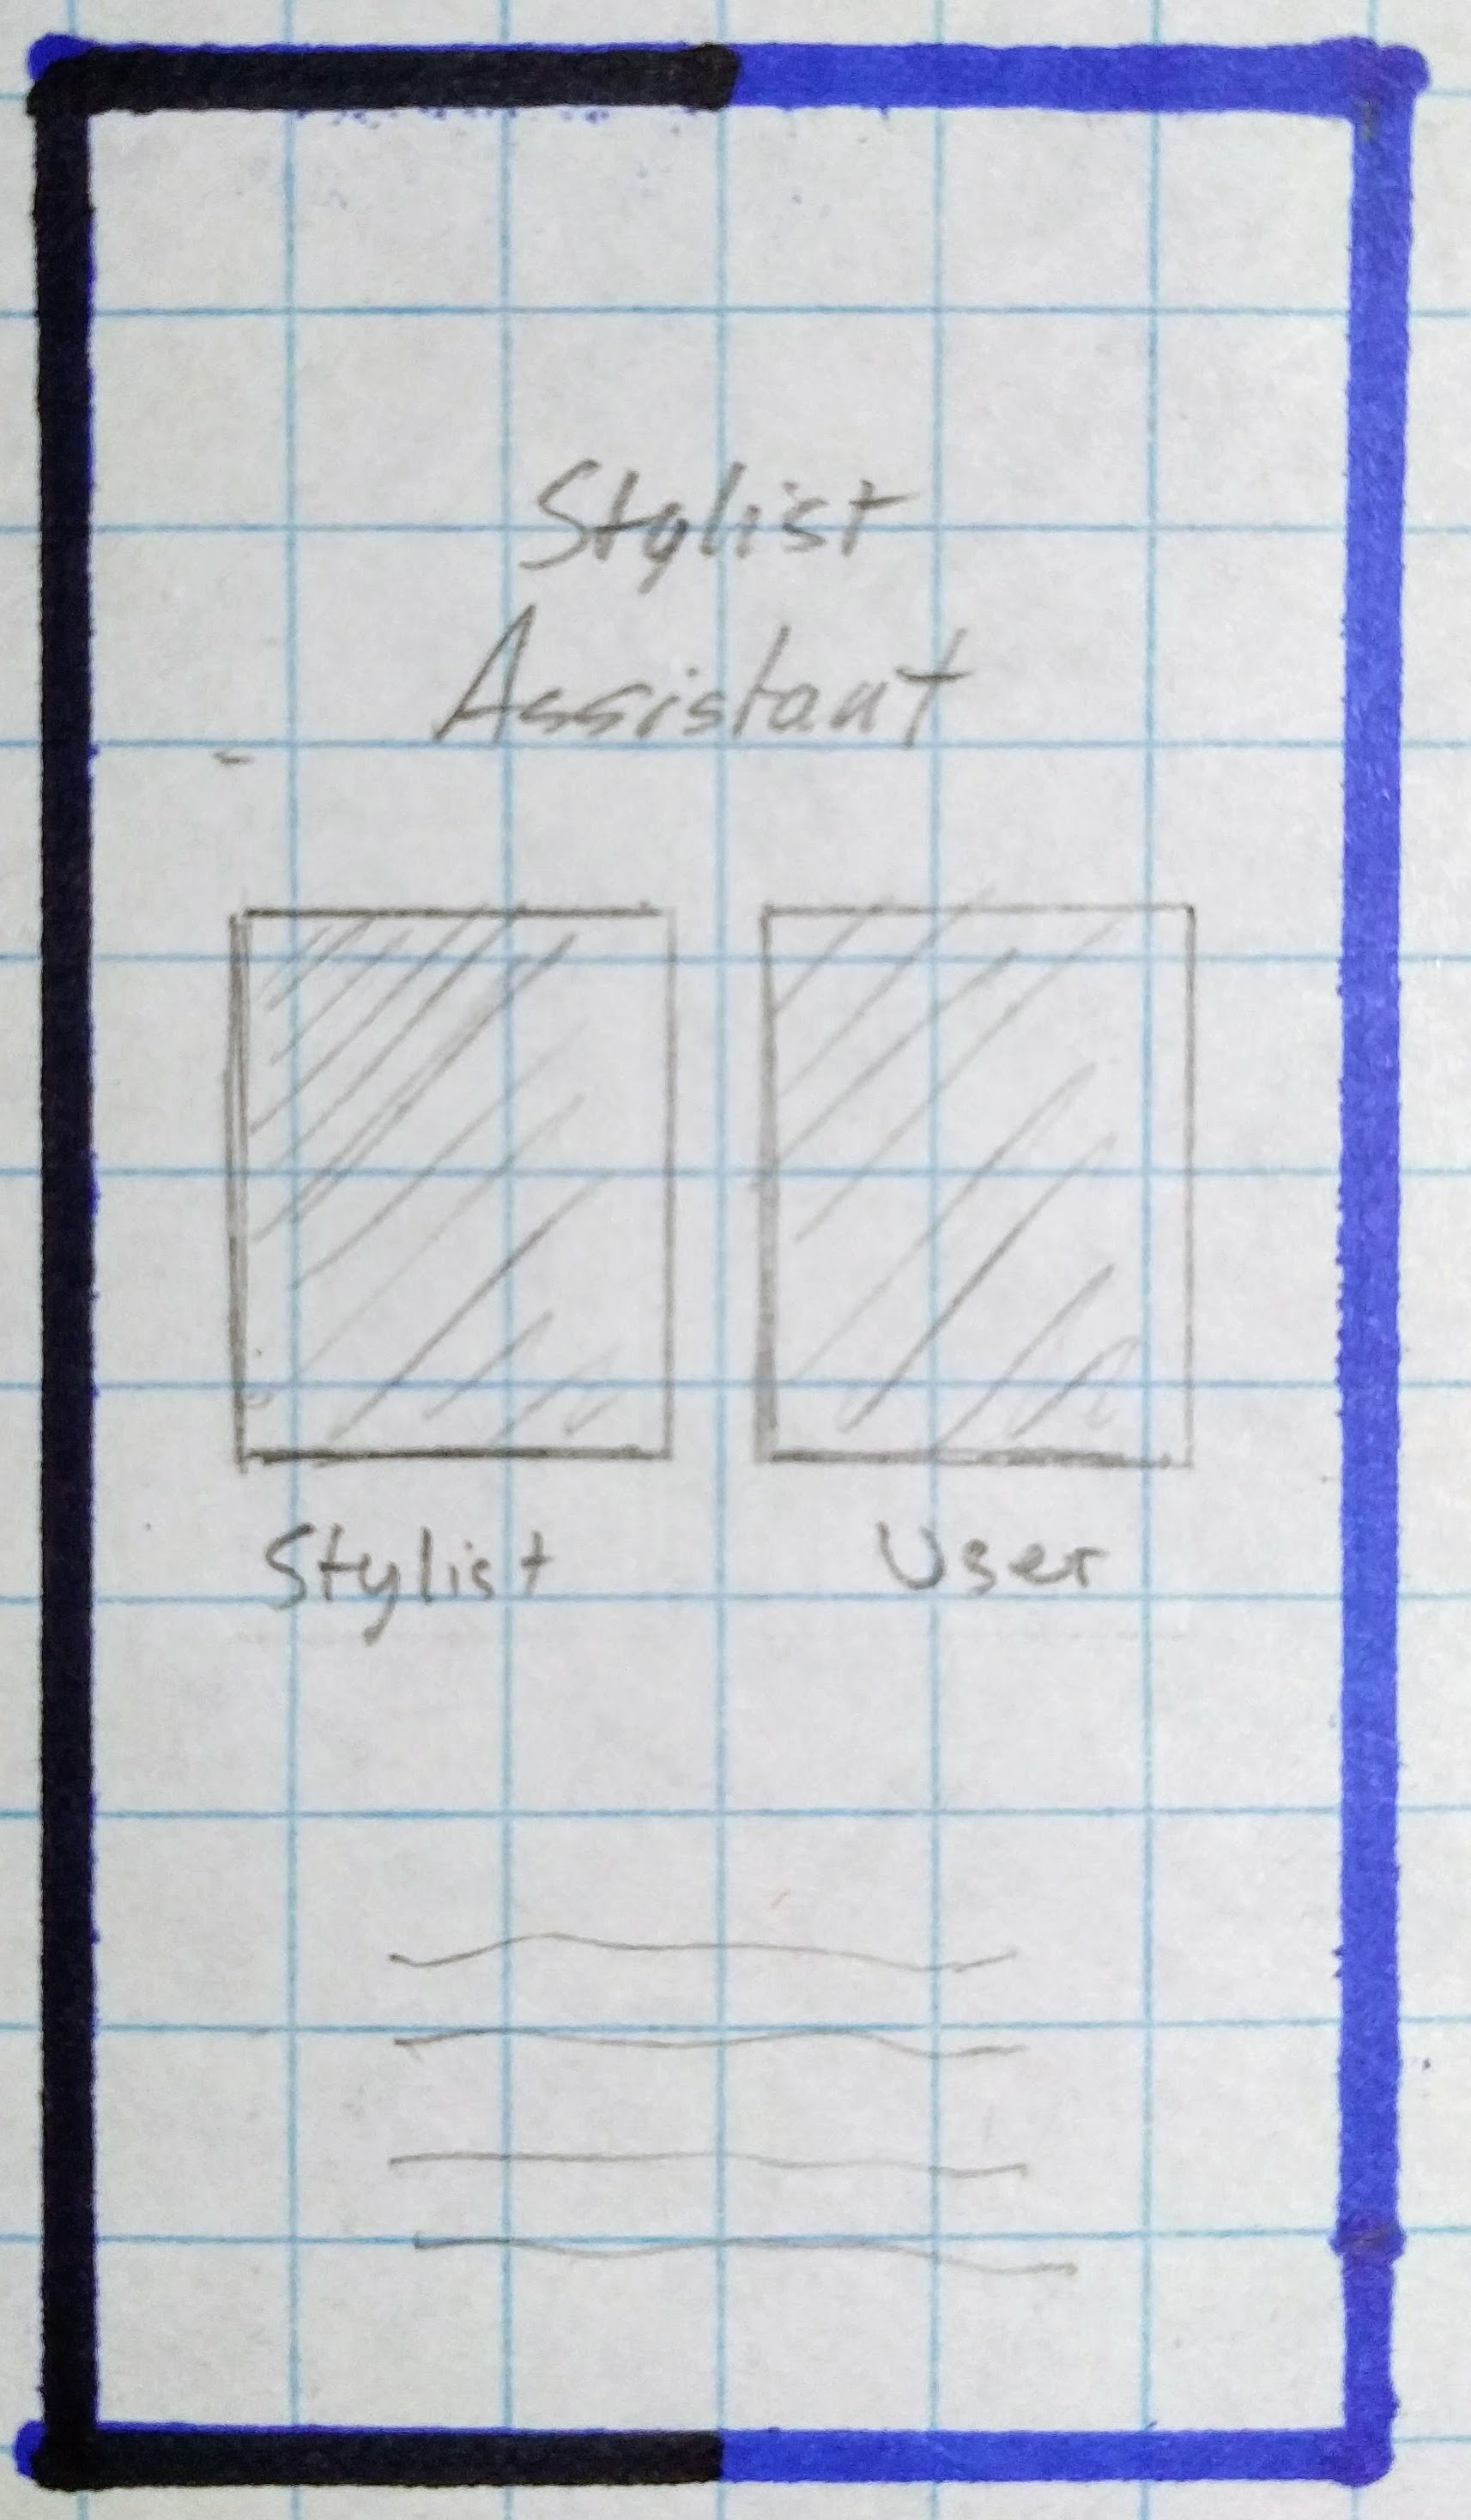 Stylist
Assistant
Stylist
User